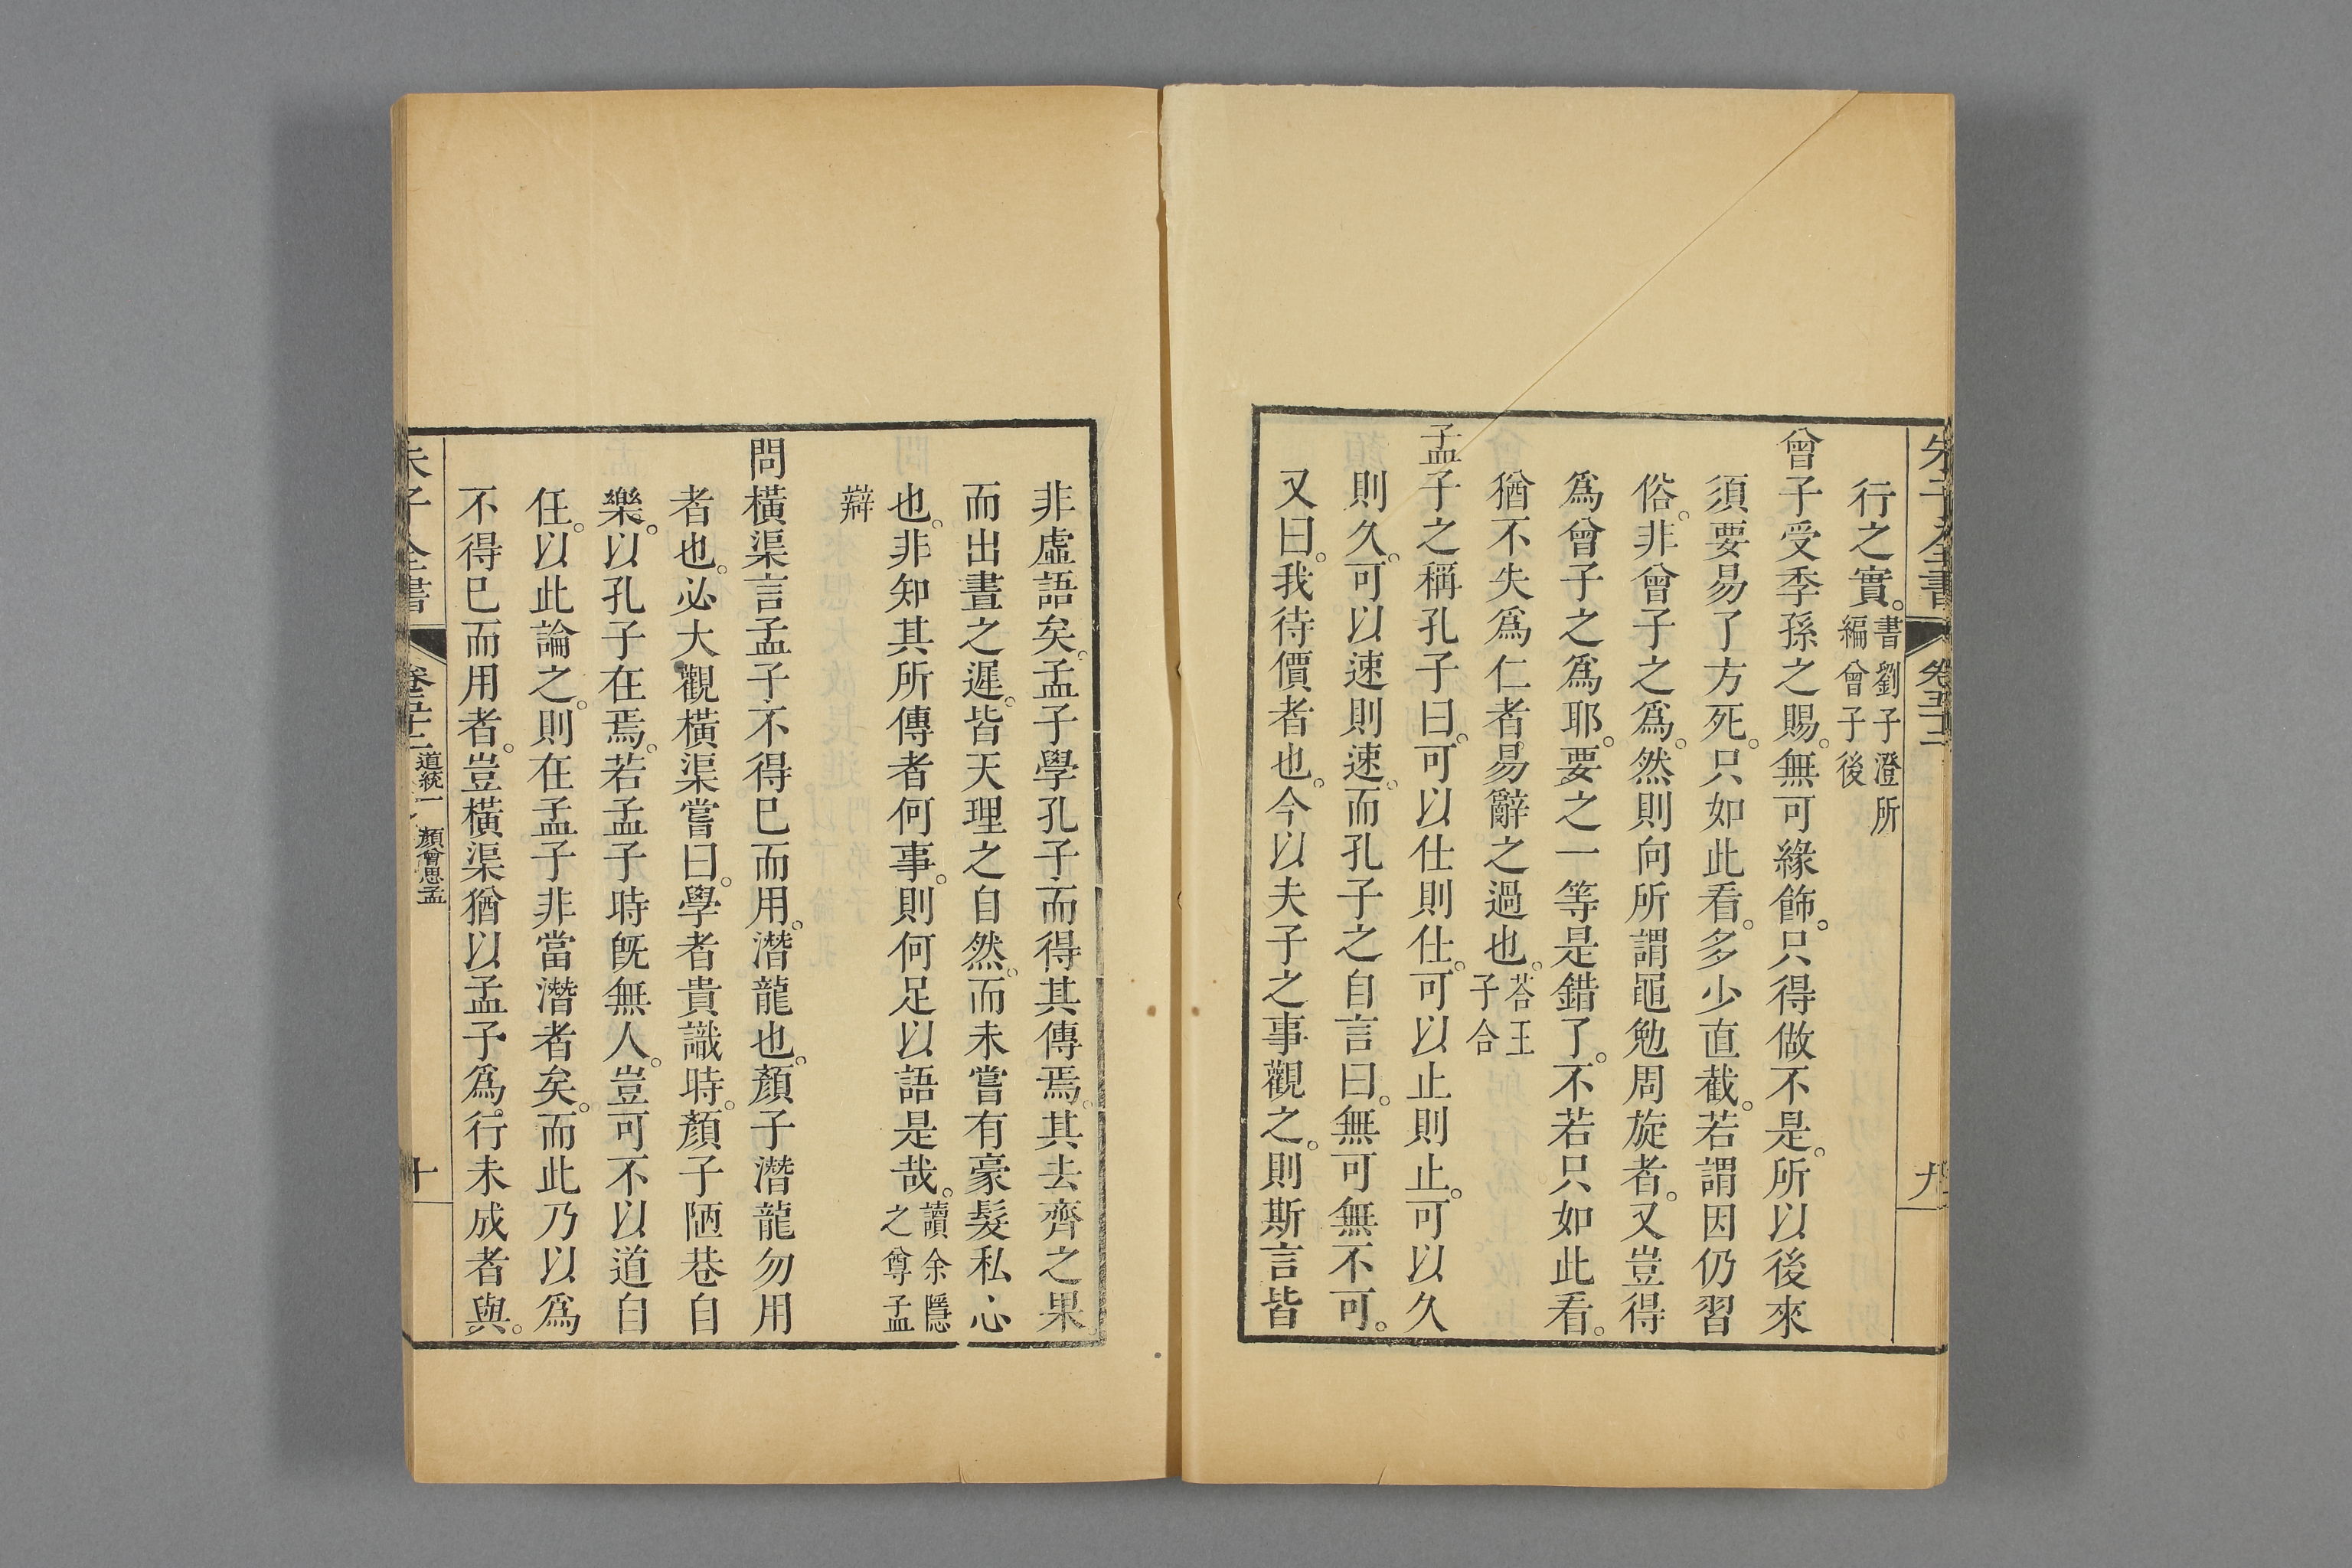 朱子全書
卷五十二
九
行之實。書劉子澄所
編曾子後
曾子受季孫之賜。無可緣飾。只得做不是。所以後來
須要易了方死。只如此看。多少直截。若謂因仍習
俗。非曾子之爲。然則向所謂黽勉周旋者。又豈得
爲曾子之爲耶。要之一等是錯了。不若只如此看。
猶不失爲仁者易辭之過也。荅王
子合
孟子之稱孔子曰。可以仕則仕。可以止則止。可以久
則久。可以速則速。而孔子之自言曰。無可無不可。
又曰。我待價者也。今以夫子之事觀之。則斯言皆
非虛語矣。孟子學孔子而得其傳焉。其去齊之果。
而出晝之遲。皆天理之自然。而未嘗有豪髮私心
也。非知其所傳者何事。則何足以語是哉。讀余隱
之尊孟
辯
問橫渠言孟子不得已而用。潛龍也。顏子潛龍勿用
者也。必大觀橫渠嘗曰。學者貴識時。顏子陋巷自
樂。以孔子在焉。若孟子時旣無人。豈可不以道自
任。以此論之。則在孟子非當潛者矣。而此乃以爲
不得已而用者。豈橫渠猶以孟子爲行未成者與。
朱子全書
卷五十二
道統一
顏曾思孟
十